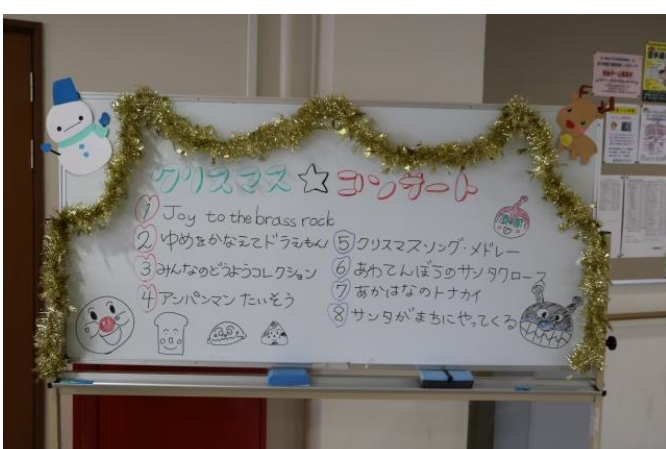 クリスマス☆コンサート
① Joy to the brass rock
② ゆめをかなえてドラえもん
③ みんなのどうようコレクション
④ アンパンマン たいそう
⑤ クリスマスソング・メドレー
⑥ あわてんぼうのサンタクロース
⑦ あかはなのトナカイ
⑧ サンタがまちにやってくる